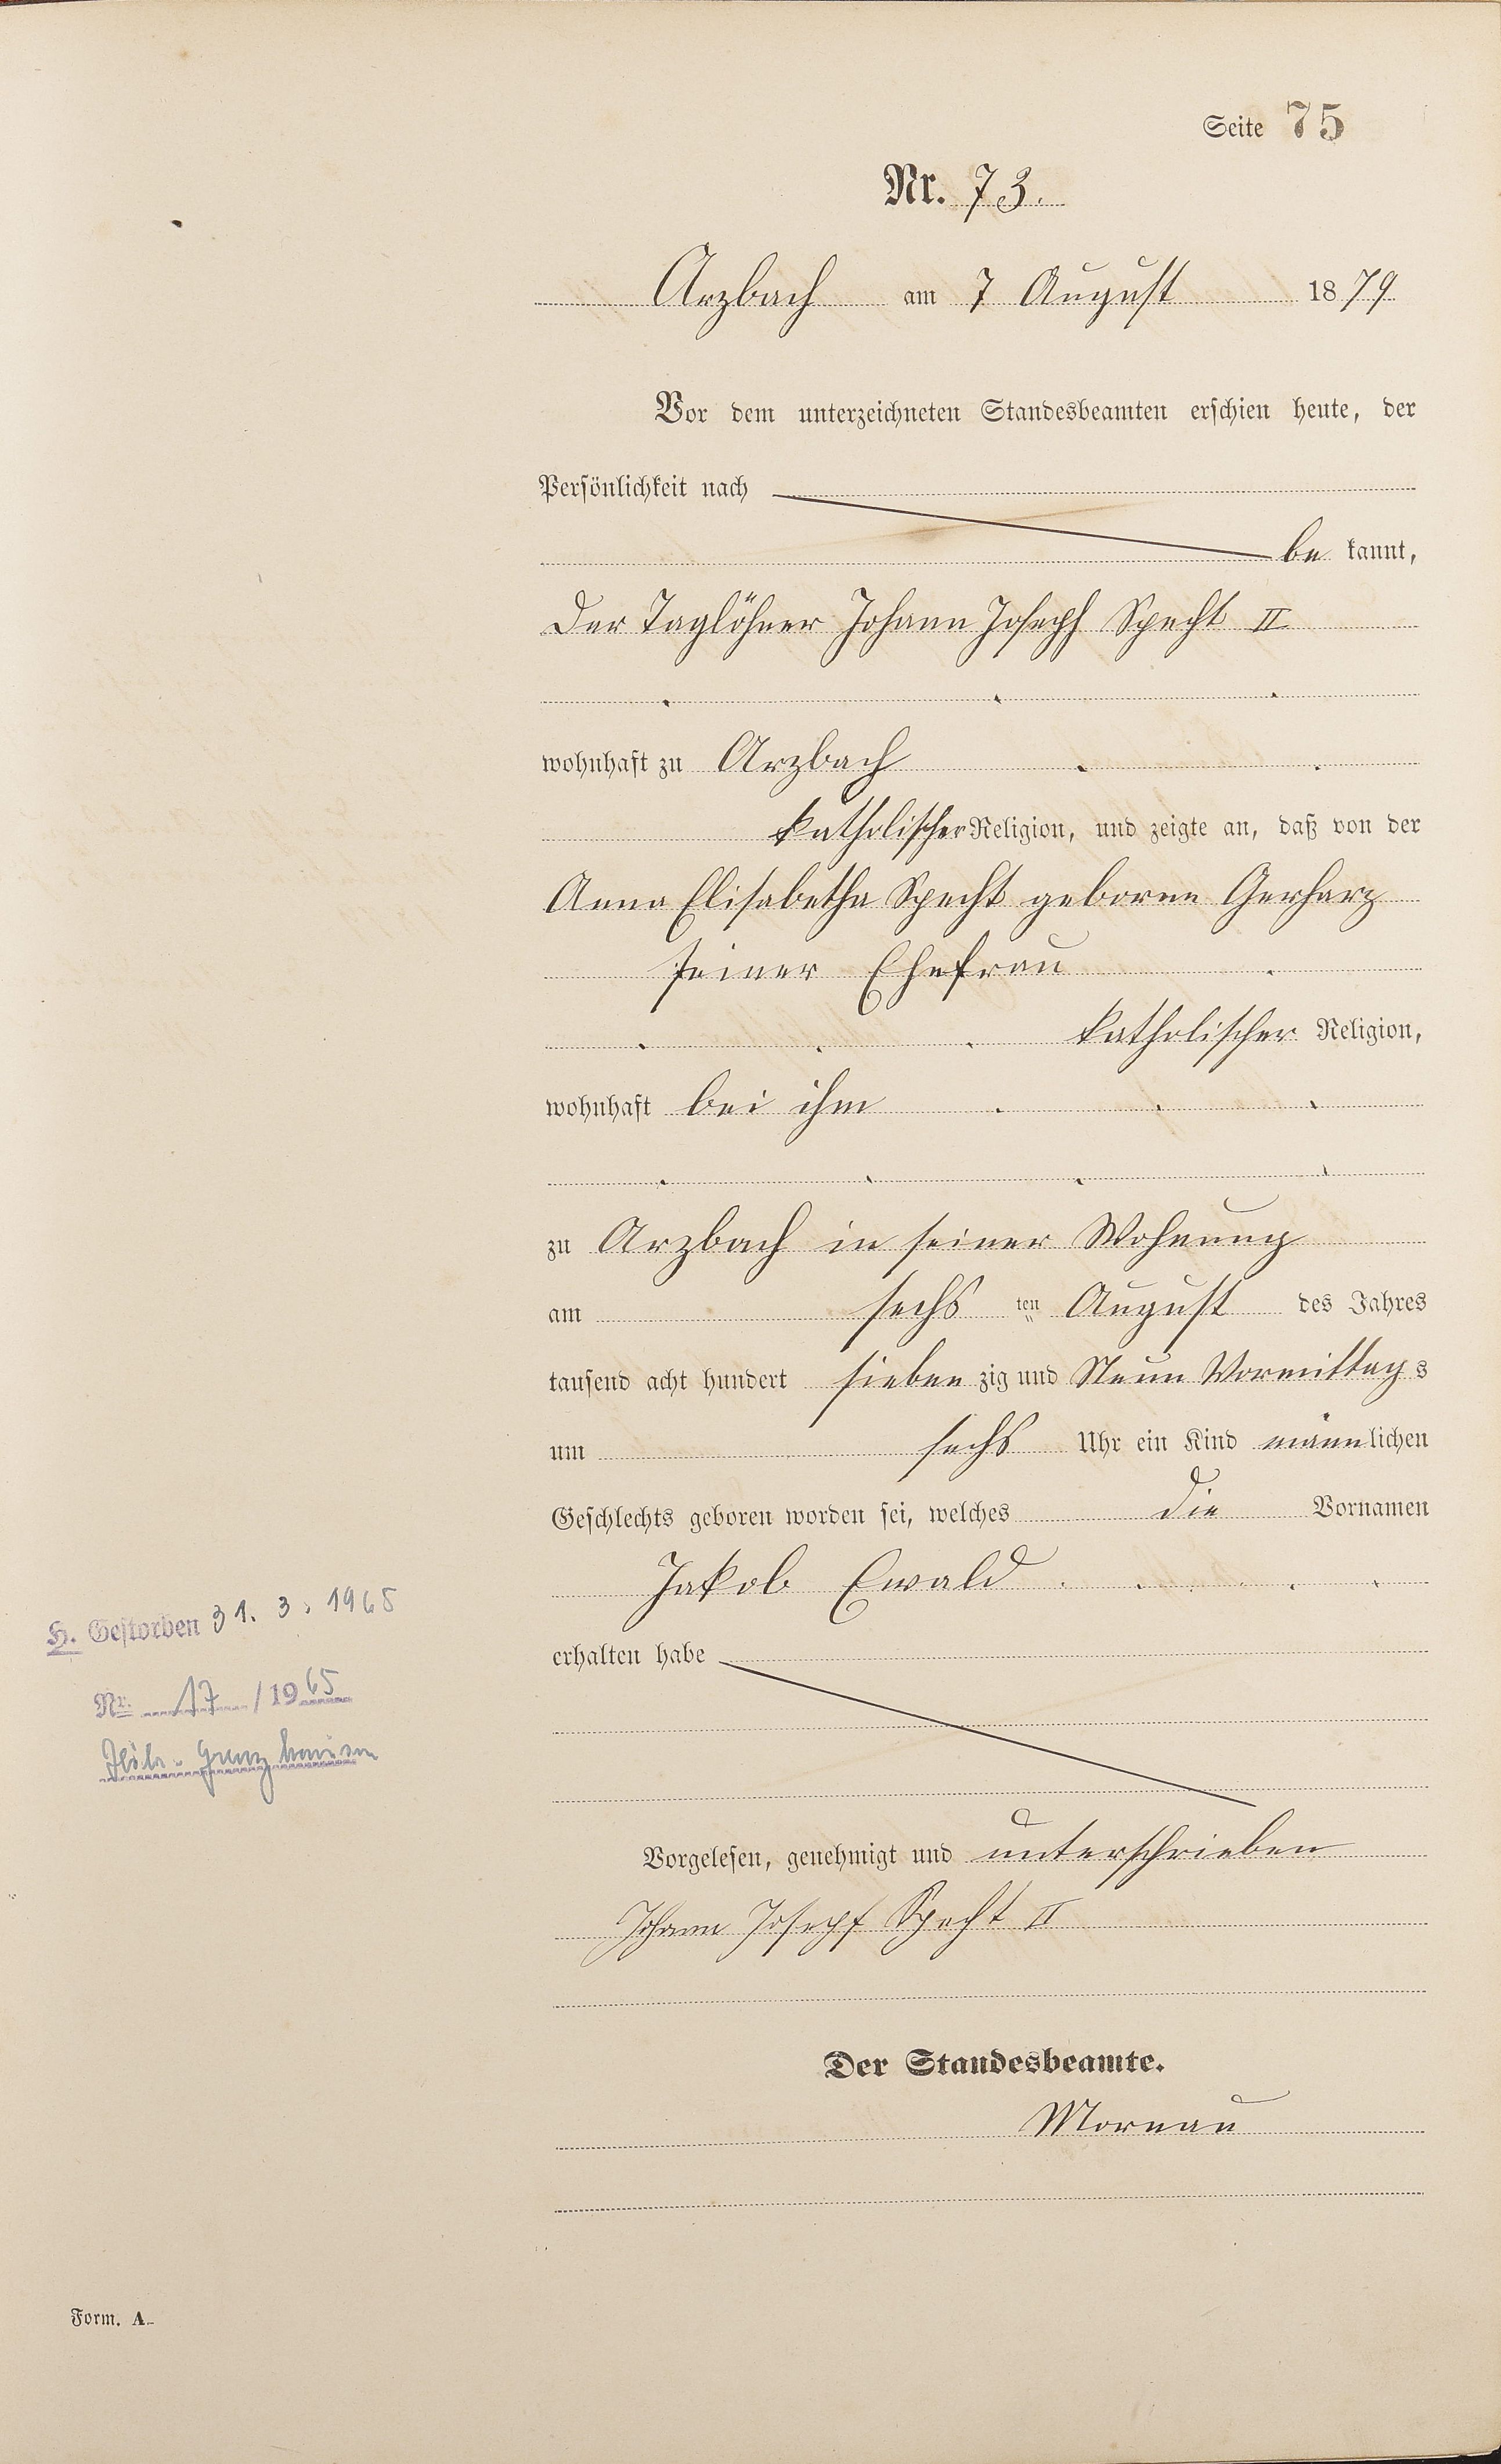 Seite 75
Nr. 73.
Arzbach am 7 August 1879
Vor dem unterzeichneten Standesbeamten erschien heute, der
Persönlichkeit nach
be kannt,
Der Taglöhner Johann Joseph Specht II
wohnhaft zu Arzbach
katholischer Religion, und zeigte an, daß von der
Anna Elisabetha Specht geborne Gerharz
seiner Ehefrau
katholischer Religion,
wohnhaft bei ihm
zu Arzbach in seiner Wohnung
am sechs ten August des Jahres
tausend acht hundert sieben zig und Neun Vormittags
um sechs Uhr ein Kind männlichen
Geschlechts geboren worden sei, welches die Vornamen
Jakob Ewald
H. Gestorben 31. 3. 1965
erhalten habe
Nr. 17 / 1965
Höhr-Grenzhausen
Vorgelesen, genehmigt und unterschrieben
Johann Josepf Specht II
Der Standesbeamte.
Mornau
Form. A.